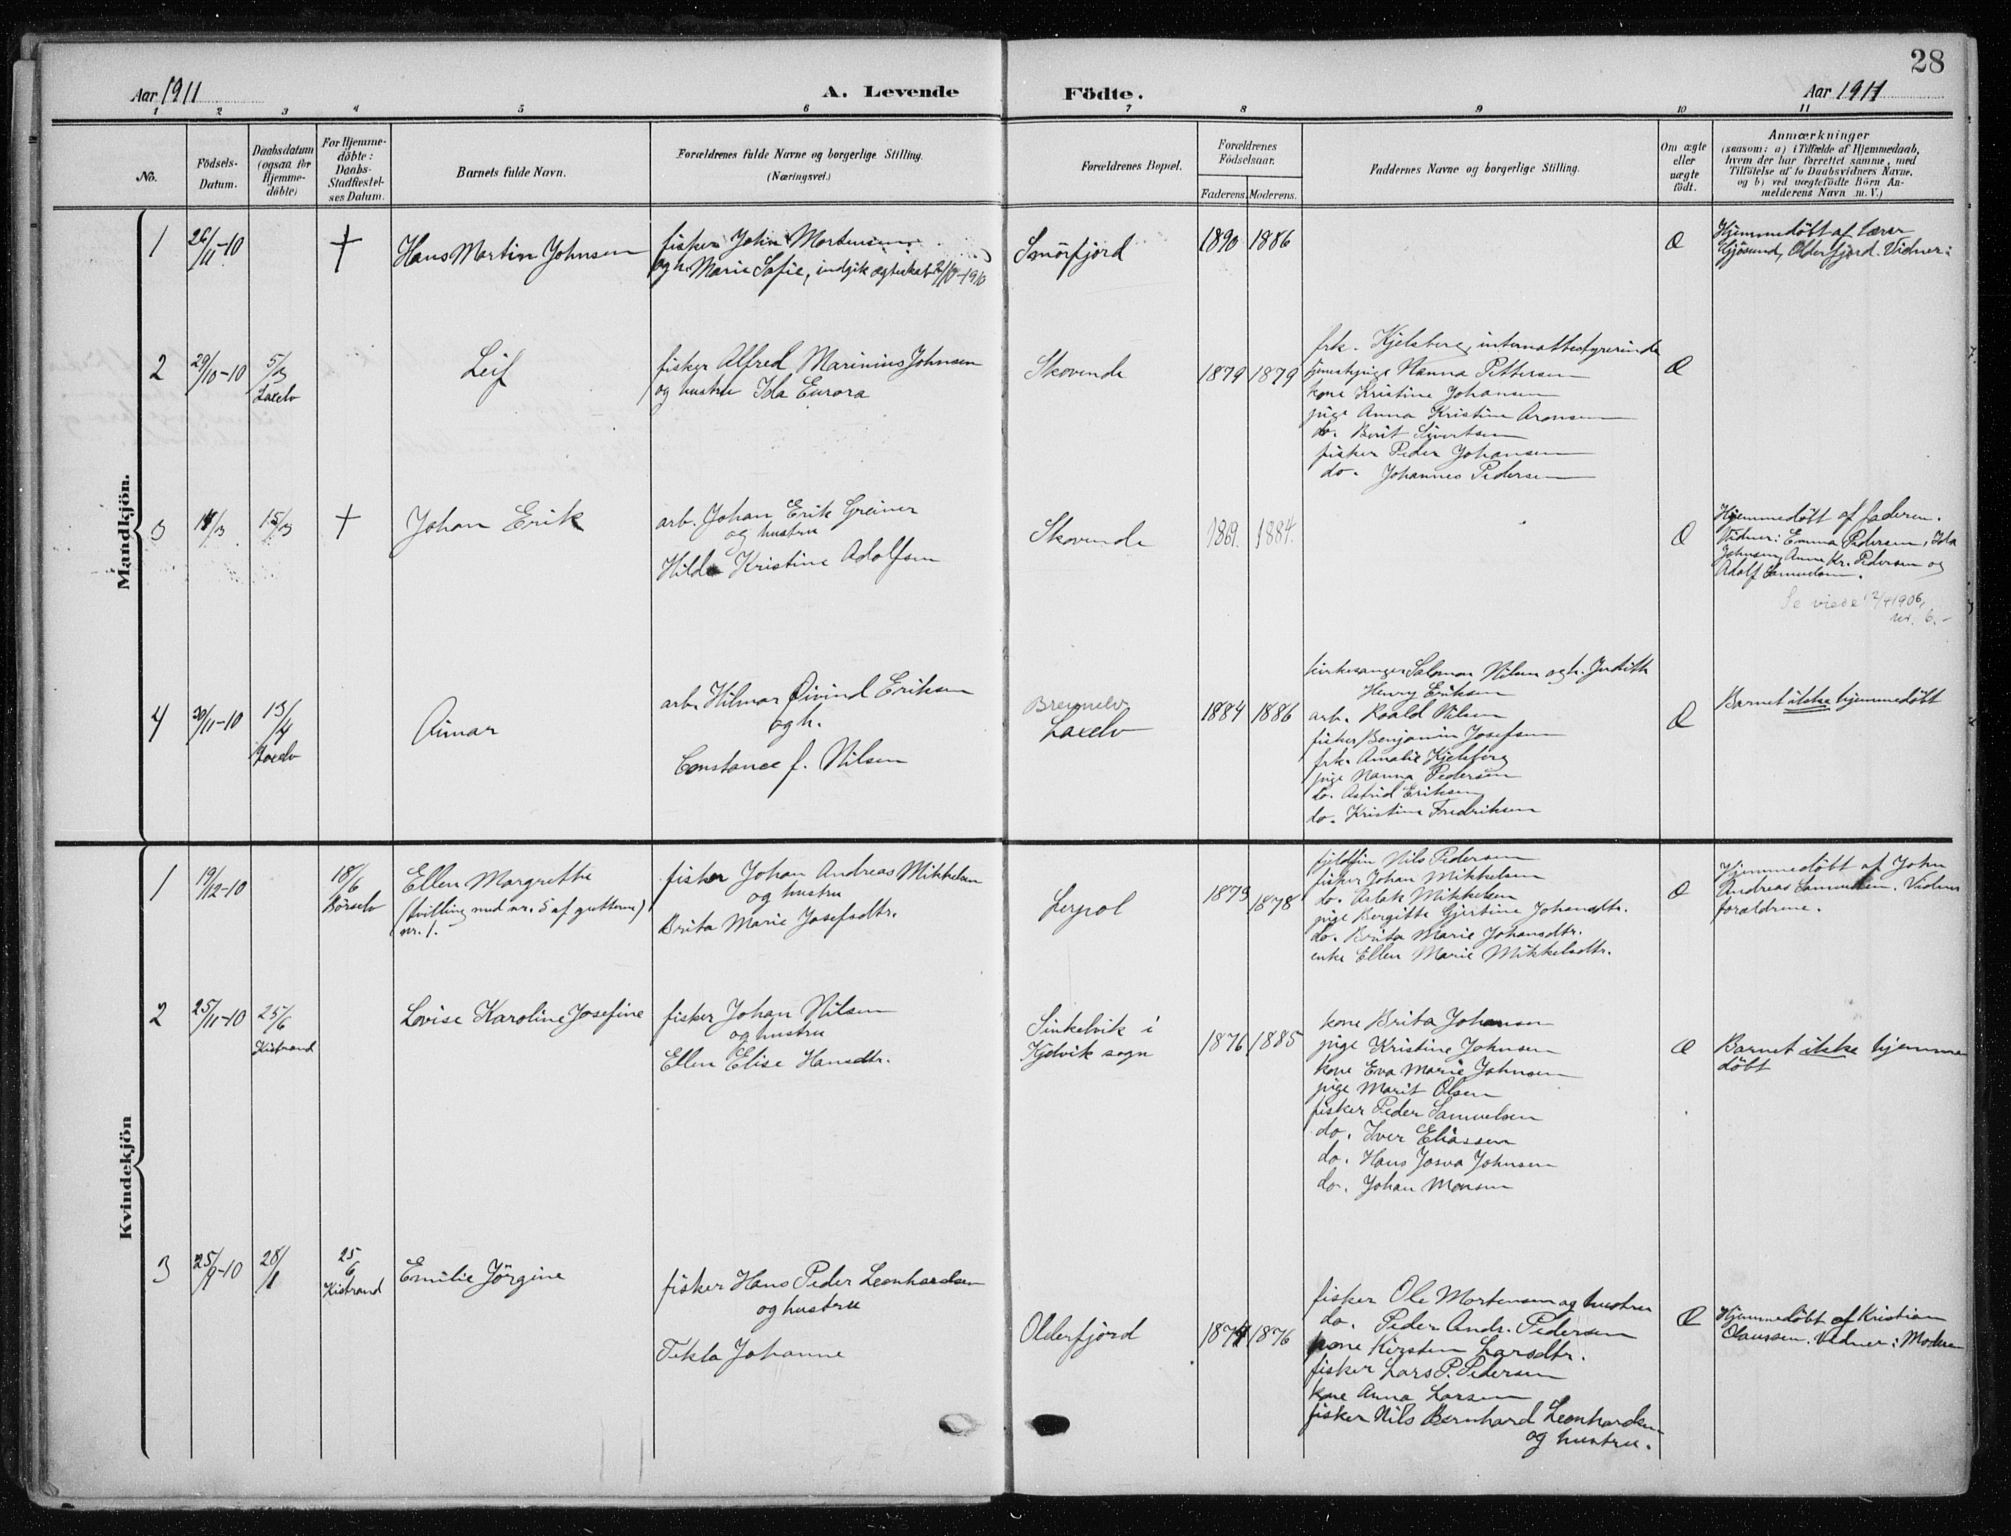 28
Aar 1911
A. Levende
Födte.
Aar 1911
1 2 3 4 5 6 7 8 9 10 11
No.
Födsels-
Datum.
Daabsdatum
(ogsaa for
Hjemme-
döbte)
For Hjemme-
döbte:
Daabs-
Stadfæstel-
ses Datum.
Barnets fulde Navn.
Forældrenes fulde Navne og borgerlige Stilling.
(Næringsvei.)
Forældrenes Bopæl.
Forældrenes
Födselsaar.
Faderens. Moderens.
Faddernes Navne og borgerlige Stilling.
Om ægte
eller
uægte
födt.
Anmærkninger
(saasom: a) i Tilfælde af Hjemmedaab,
hvem der har forrettet samme, med
Tilföielse af to Daabsvidners Navne.
og b) ved uægtefödte Börn An-
melderens Navn m. V.)
Mandkjön.
1
26/11-10
†
Hans Martin Johnsen
fisker John Mortensen
og h. Marie Sofie, indgik ægteskab 1910
Smörfjord
1890 1886
Æ
Hjemmedöbt af lærer
Olderfjord. Vidner:
2
29/10-10
5/3
Laxelv
Leif
fisker Alfred Marinius Johnsen
og hustru Ida Eurora
Skovende
1879 1879
frk. Kjelsberg, internatbestyrerinde
Nanna Pettersen
kone Kristine Johansen
pige Anna Kristine Aronsen
do. Berit Sivertsen
fisker Peder Johansen
do. Johannes Pedersen
Æ
3
14/3
15/3
†
Johan Erik
arb. Johan Erik Greiner
og hustru
Hilda Kristine Adolfsen
Skovende
1861. 1884.
Æ
Hjemmedöbt af faderen.
Vidner: Emma Pedersen, Ida
Johnsen, Anna Kr. Pedersen og
Adolf Samuelsen.
Se viede 1906,
nr. 6.
4
30/11-10
13/4
Laxelv
Aimar
arb. Hilmar Öivind Eriksen
og h.
Constance f. Nilsen
Brennelv
Laxelv
1884 1886
kirkesanger Salomon Nilsen og h. Judith
Henry Eriksen
arb. Roald Nilsen
fisker Benjamin Josefsen
frk. Amalie Kjelsberg
pige Nanna Pedersen
do. Astrid Eriksen
do. Kristine Fredriksen
Æ
Barnet ikke hjemmedöbt
Kvindekjön
1
19/12-10
18/6
Börselv
Ellen Margrethe
(tvilling med nr. 5 af guttene)
nr. 1.
fisker Johan Andreas Mikkelsen
og hustru
Brita Marie Josefsdtr.
Lerpol
1879 1878
fjeldfin Nils Pedersen
fisker Johan Mikkelsen
do. Aslak Mikkelsen
pige Bergitte Gjertine Johansdtr.
do. Brita Marie Johansdtr.
enke Ellen Marie Mikkelsdtr.
Æ
Hjemmedöbt af John
Andreas Samuelsen. Vidner
forældrene.
2
25/11-10
25/6
Kistrand
Lovise Karoline Josefine
fisker Johan Nilsen
og hustru
Ellen Elise Hansdtr.
Sinkelvik i
Kjelvik sogn
1876 1885
kone Brita Johansen
pige Kristine Johnsen
kone Eva Marie Johnsen
pige Marit Olsen
fisker Peder Samuelsen
do. Iver Eliassen
do. Hans Josva Johnsen
do. Johan Monsen
Æ
Barnet ikke hjemme
döbt
3
25/9-10
28/1
25/6
Kistrand
Emilie Jörgine
fisker Hans Peder Leonhardsen
og hustru
Tekla Johanne
Olderfjord
1874 1876
fisker Ole Mortensen og hustru
do. Peder Andr. Pedersen
kone Kirsten Larsdtr.
fisker Lars P. Pedersen
kone Anna Larsen
fisker Nils Bernhard Leonhardsen
og hustru.
Æ
Hjemmedöbt af Kristian
Olaussen. Vidner: Moderen